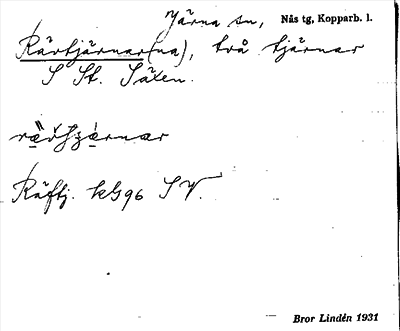 Järna sn, Nås tg, Kopparb. l.
Rävtjärnar(na), två tjärnar
S St. Säxen.
Räftj. kG96 SV.
Bror Lindén 1931